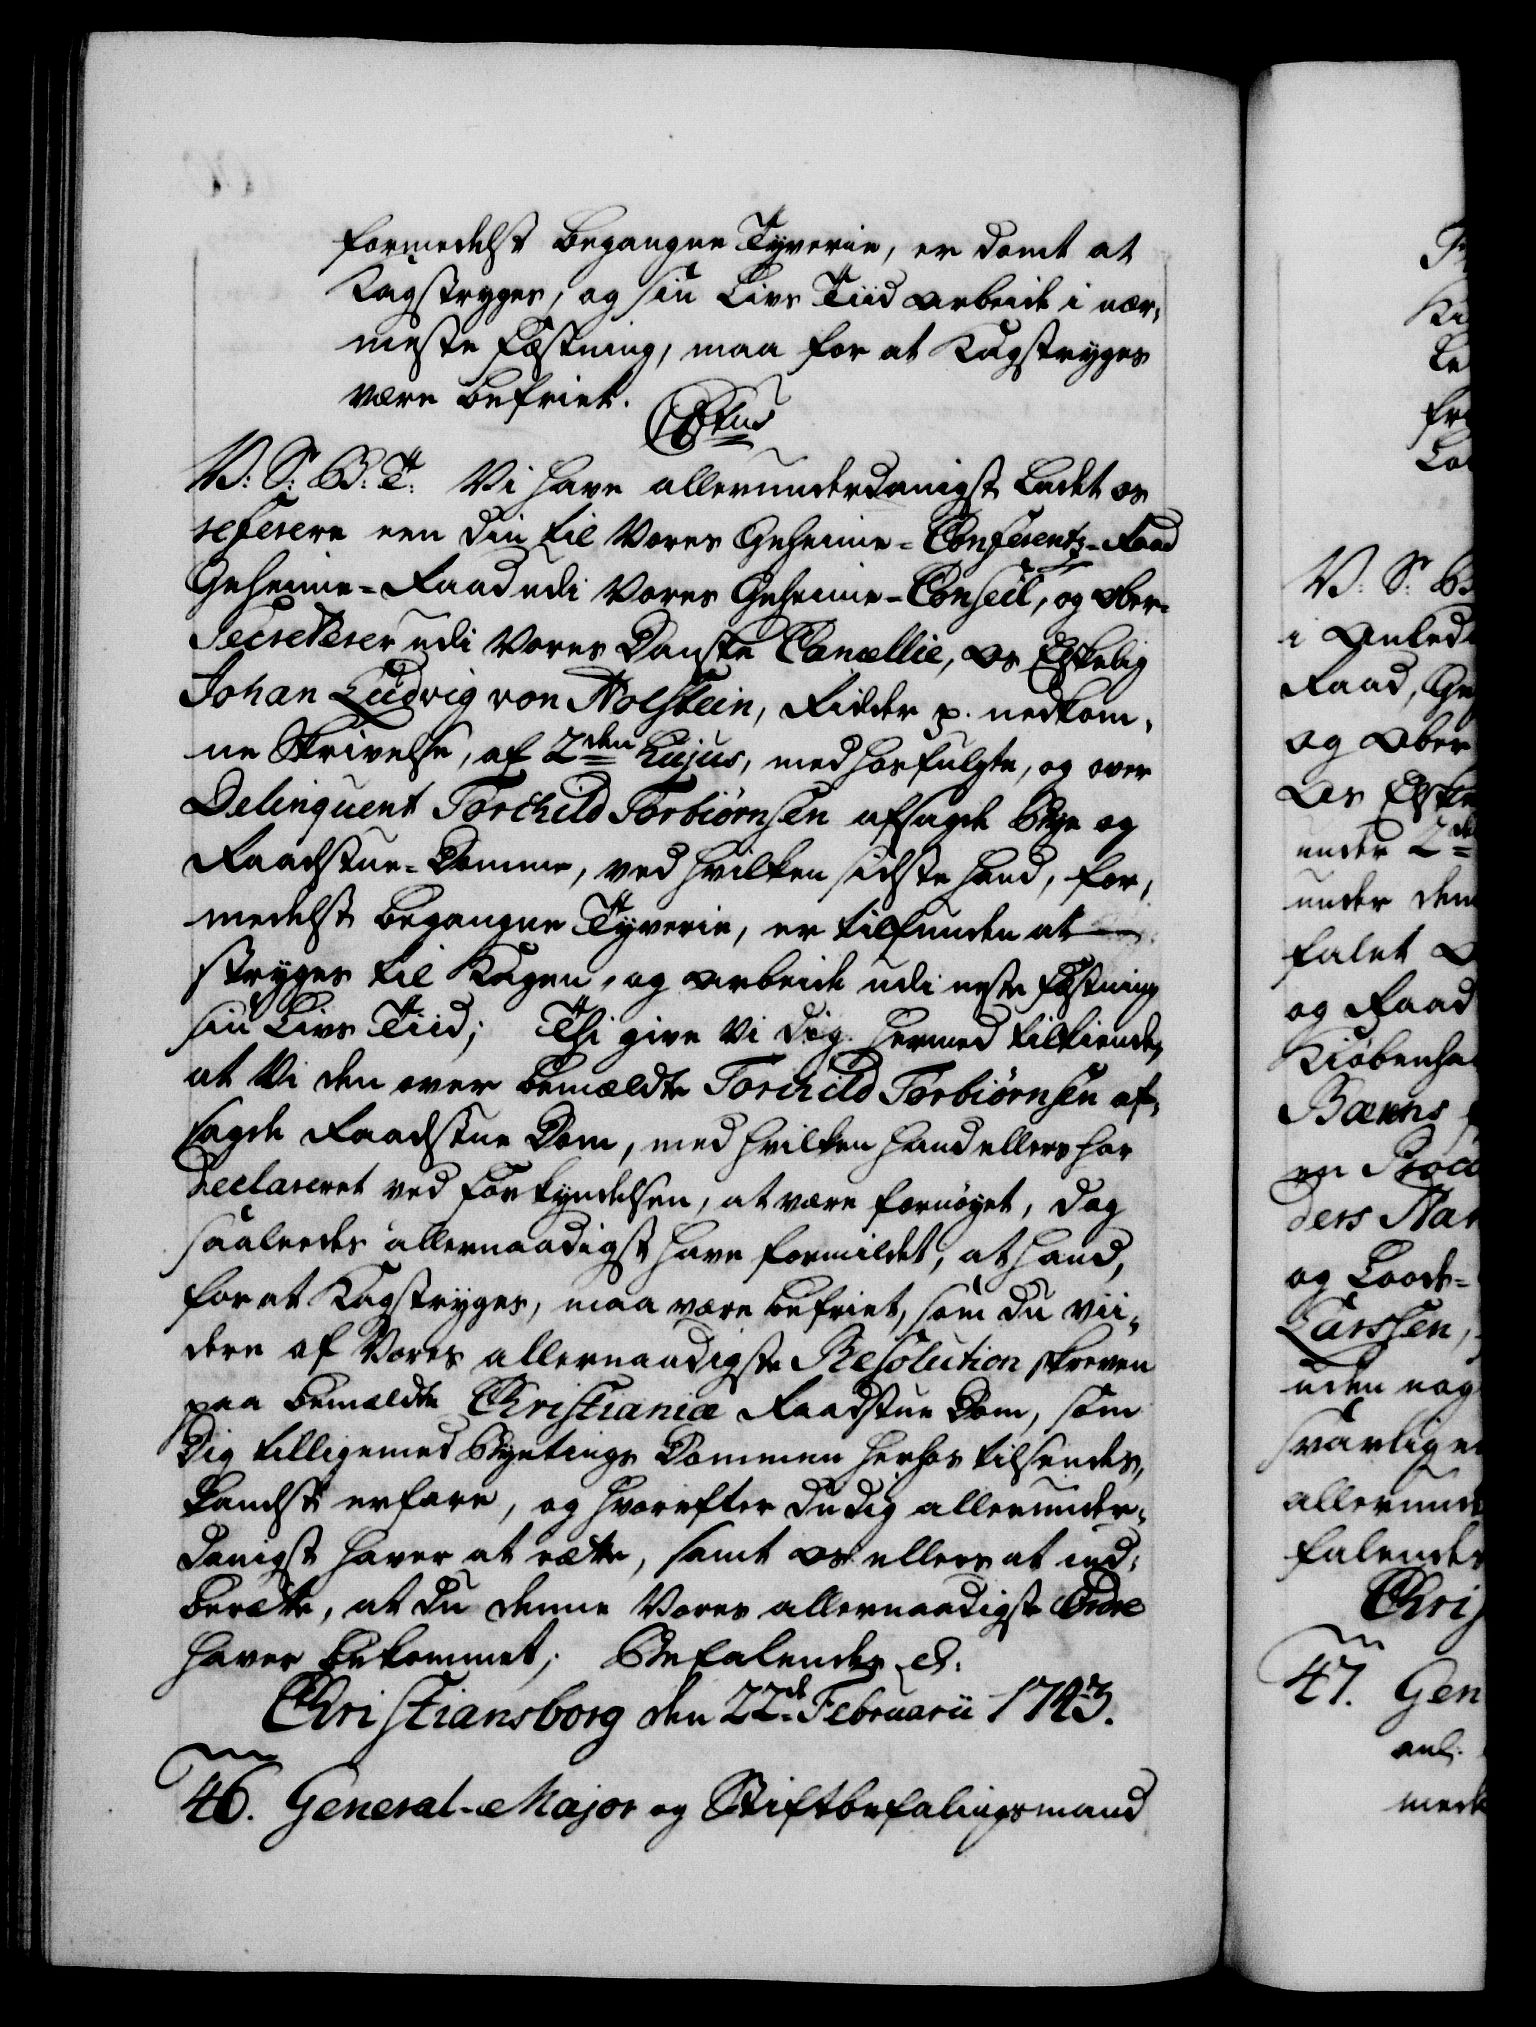 formedelst begangne Tyverie, er dømt at
Kagstryges, og sin Livs Tiid arbeide i nær-
meste Fæstning, maa for at Kagstryges
være befriet.
V: S: G: T: Vi have allerunderdanigst ladet os
referere een din til Vores Geheime-Conferentz-Raad
Geheime-Raad udi Vores Geheime-Conseil, og Ober-
Secreterer udi Vores Danske Cancellie, Os Elskelig
Johan Ludvig von Holstein, Ridder p. nedkom-
ne Skrivelse, af 2den hujus, med hosfulgte, og over
Delinquent Torchild Torbiørnsen afsagde Bye og
Raadstue-Domme, ved hvilken sidste hand, for-
medelst begangne Tyverie, er tilfunden at
stryges til Kagen, og arbeide udi neste Fæstning
sin Livs Tiid; Thi give Vi dig hermed tilkiende,
at Vi den over bemældte Torchild Torbiørnsen af-
sagde Raadstue Dom, med hvilken hand ellers har
declareret ved Forkyndelsen, at være fornøyet, dog
saaledes allernaadigst have formildet, at hand,
for at Kagstryges, maa være befriet, som du vii-
dere af Vores allernaadigste Resolution skreven
paa bemældte Christianiæ Raadstue Dom, som
Dig tilligemed Byetings Dommen herhos tilsendes,
kandst erfare, og hvorefter du dig allerunder-
danigst haver at rætte, samt os ellers at ind-
berætte, at du denne Vores allernaadigste Ordre
haver bekommet; Befalendes &.
Christiansborg den 22de Februarii 1743.
46. General-Major og Stiftbefalingsmand
V: S: G
i Anled
Raad, Ge
og Ober
Os Elske
under 2de
under den
falet
og Raad
Kiøbenha
en Proc
ders Har
og Loods-
Larssen,
uden nog
svarlige
allerund
falendes
Chris
47. Gen
anl.
med